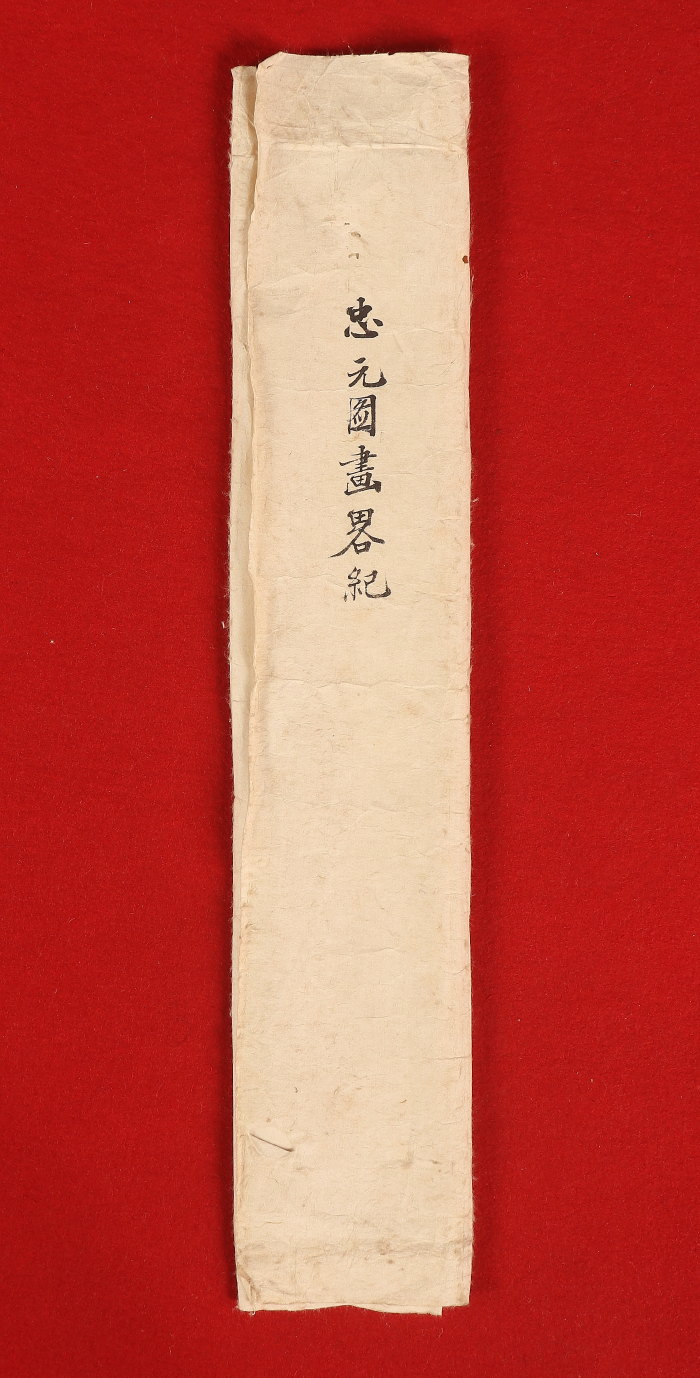 忠元圖畫畧紀